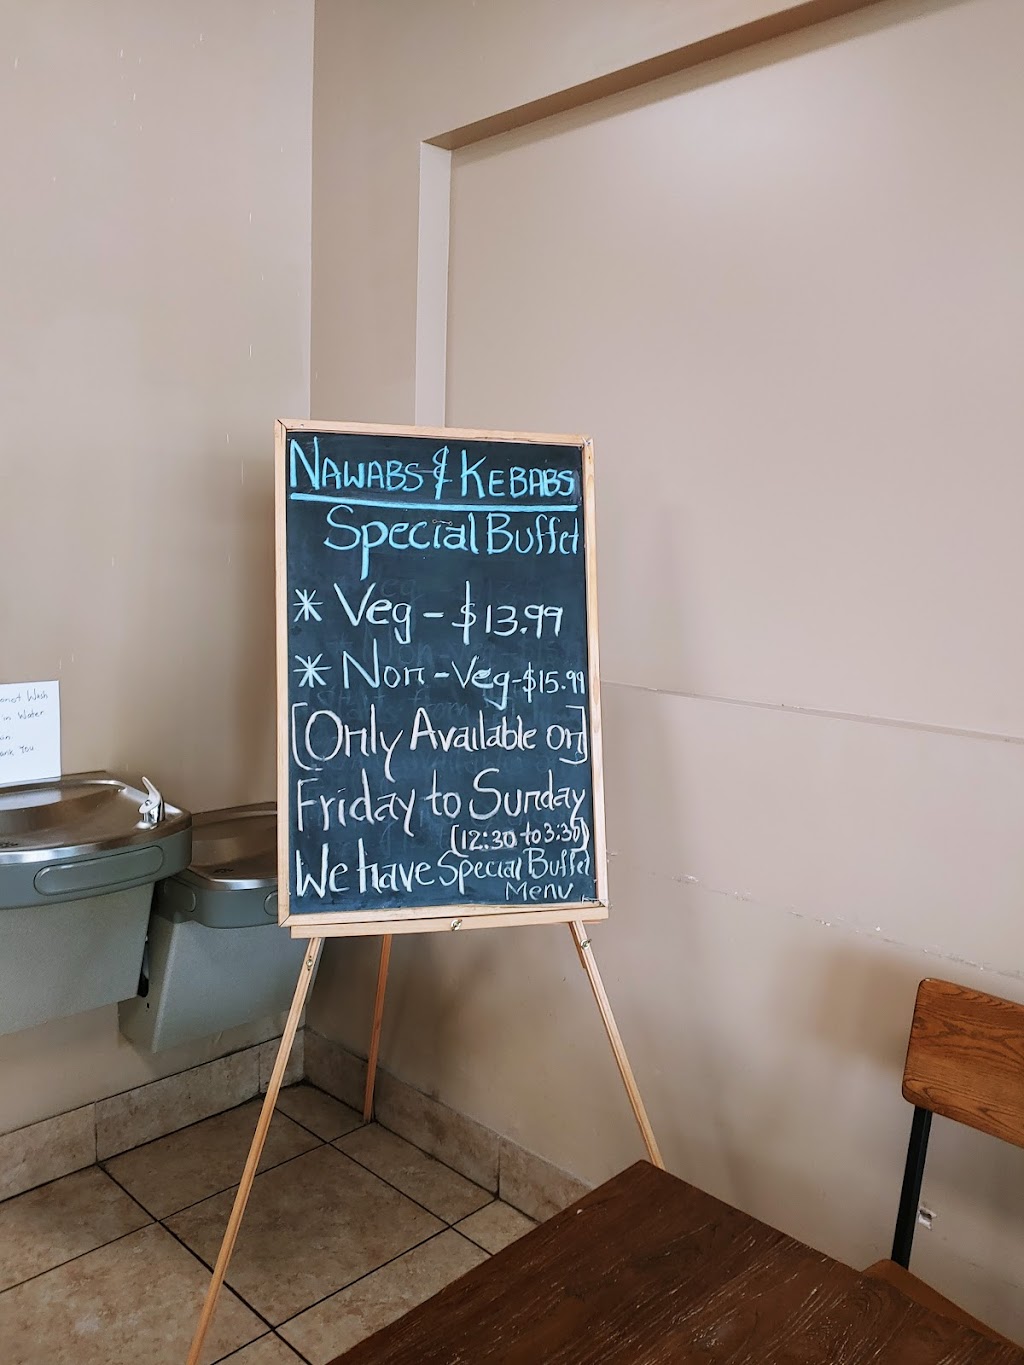 NAWABS & KEBABS
Special Buffet
* Veg - $13.99
* Non-Veg-$15.99
[Only Available on]
Friday to Sunday
[12:30 to 3:30]
We have Special Buffet
Menu
Wash
in Water
You